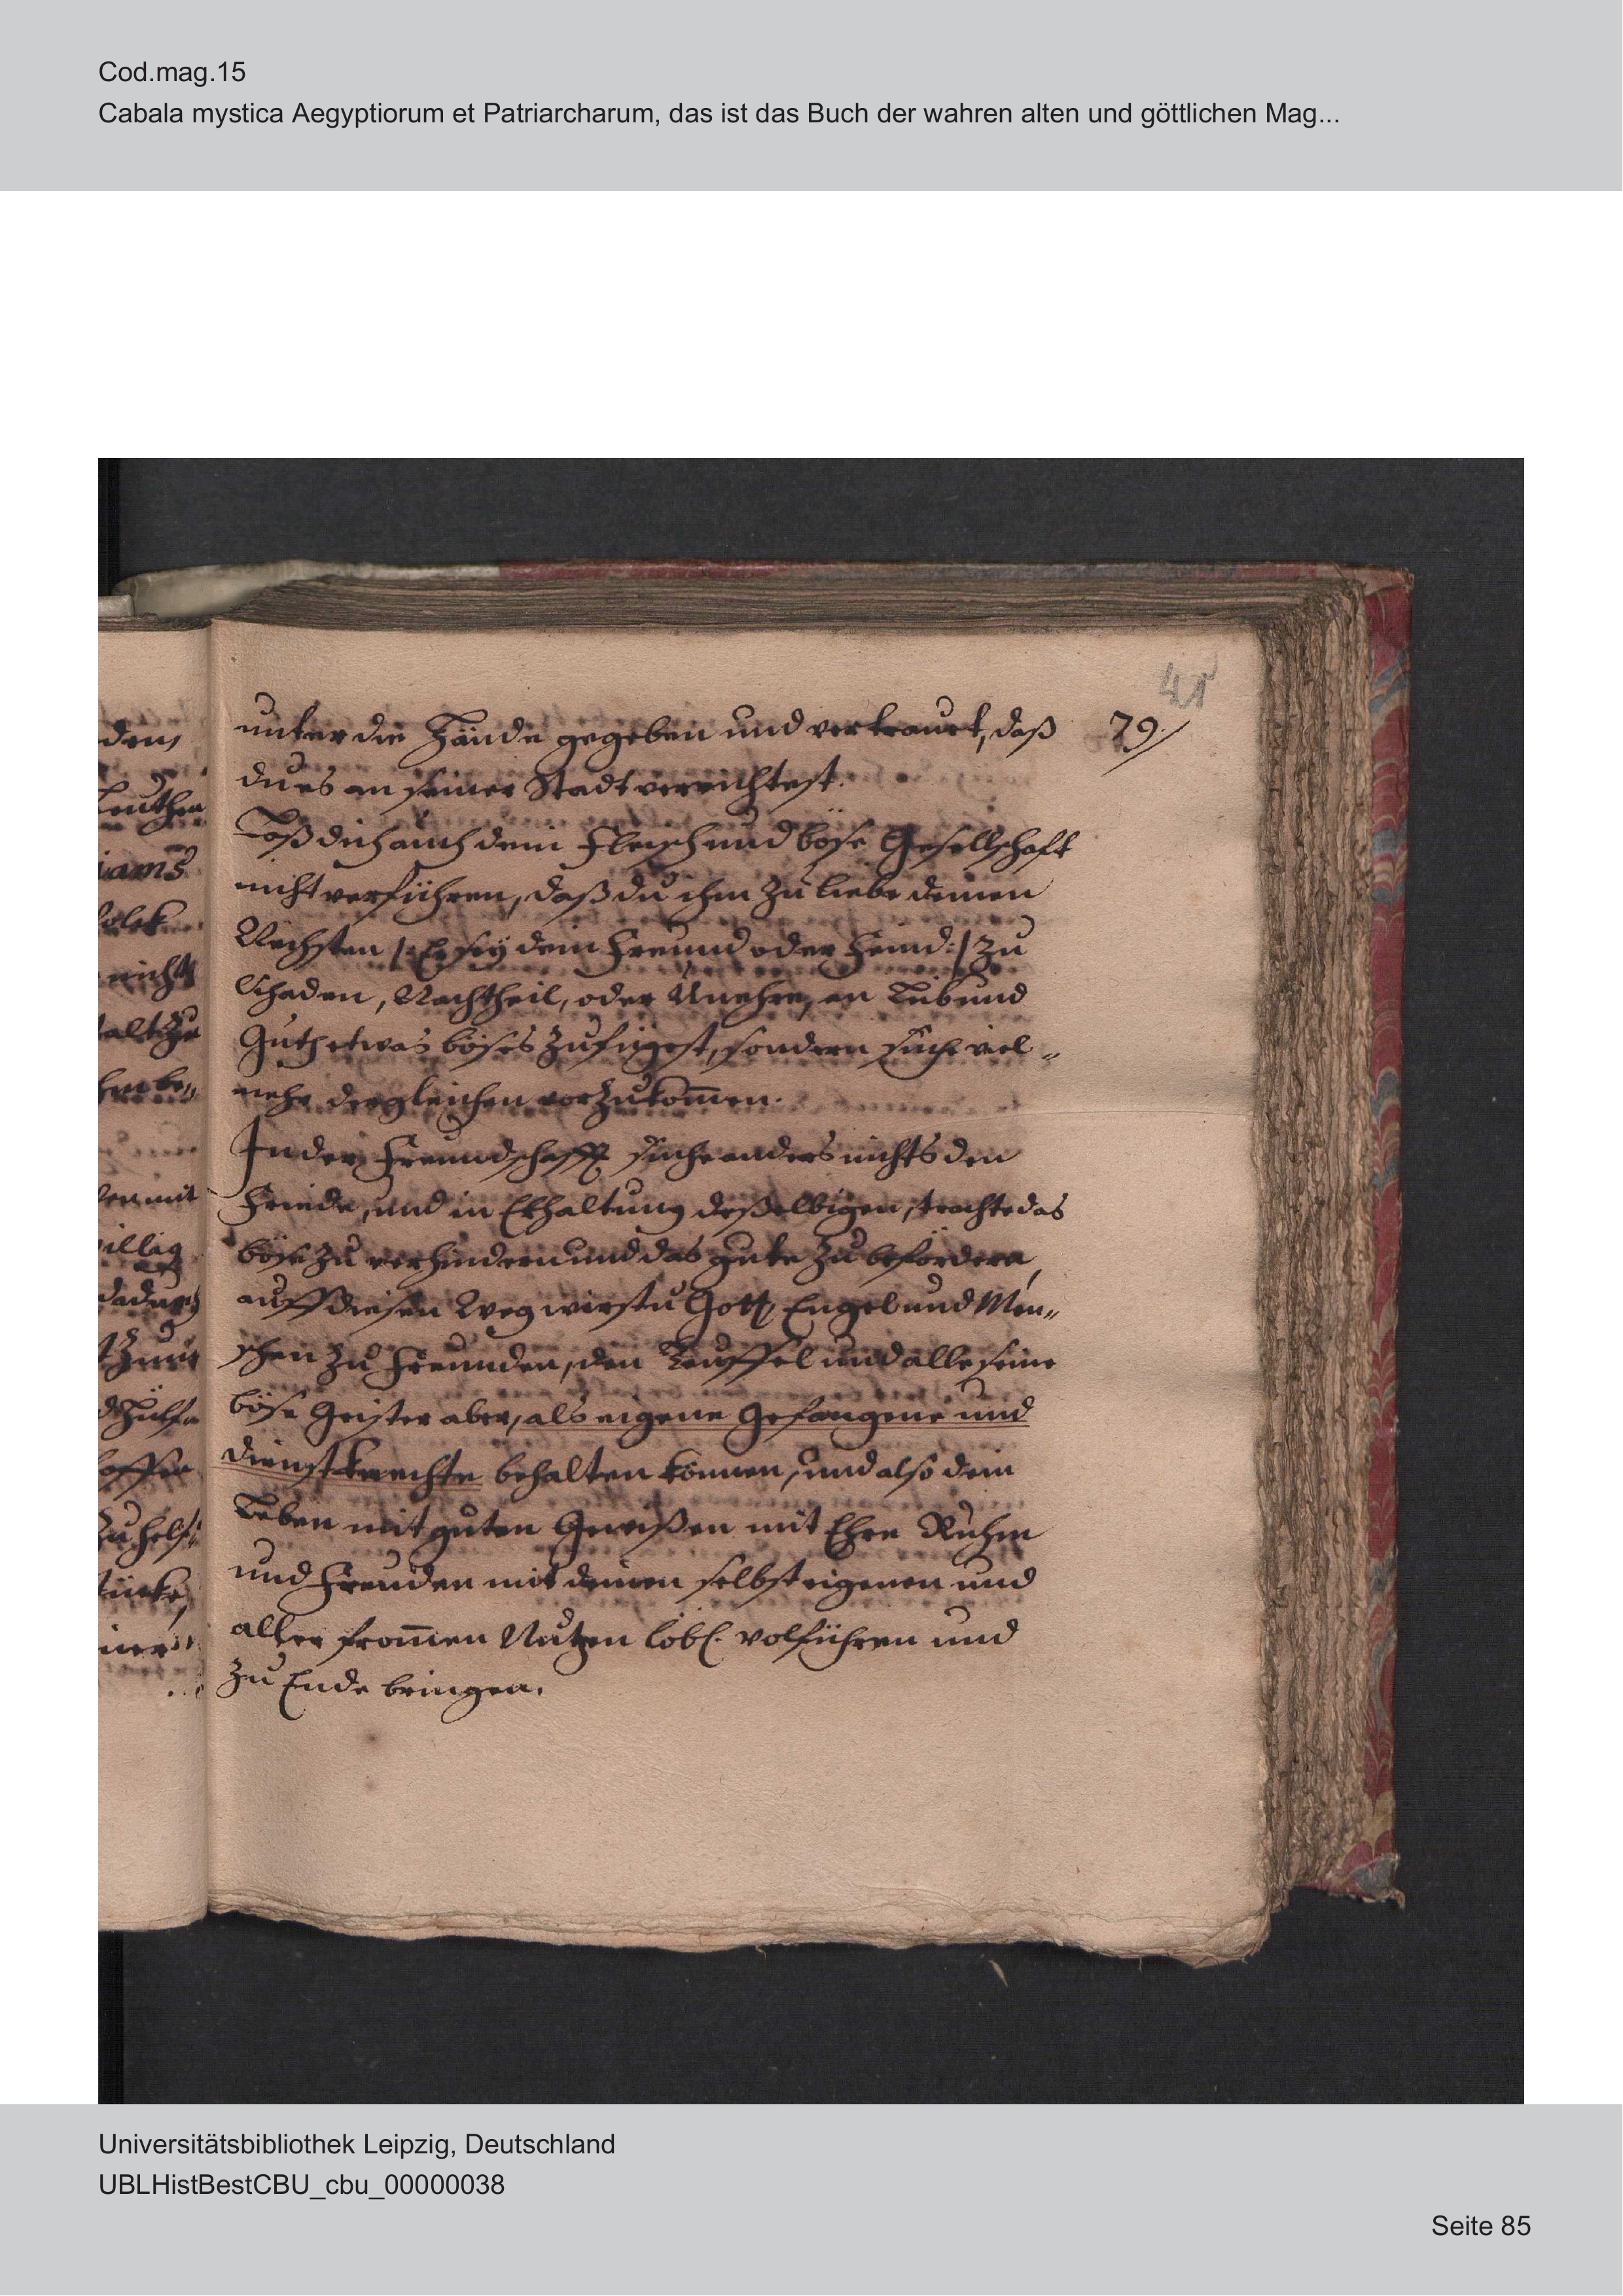 Cod.mag.15
Cabala mystica Aegyptiorum et Patriarcharum, das ist das Buch der wahren alten und göttlichen Mag...
41
79.
unter die Hände gegeben und vertrauet, daß
du es an seiner Stadt verrichtest.
Laß dich auch dein Fleisch und böse Gesellschafft
nicht verführen, daß du ihm zu liebe deinen
Nechsten /: Er sey dein Freund oder Feind :/ zu
Schaden, Nachtheil, oder Unehre, an Leib und
Guth etwas böses zufügest, sondern suche viel„
mehr dergleichen vorzukom̄en.
In der Freundschafft suche anders nichts den
Friede, und in Erhaltung deßelbigen, trachte das
böse zu verhindern und das gute zu befördern,
auff diesen Weg wirstu Gott, Engel und Men„
schen zu Freunden, den Teuffel und alle seine
böse Geister aber, als eigene Gefangene und
dienstknechte behalten können, und also dein
Leben mit guten Gewißen mit Ehre Ruhm
und Freuden mit deinen selbst eigenen und
aller from̄en Nutzen löbl. volführen und
zu Ende bringen.
Universitätsbibliothek Leipzig, Deutschland
UBLHistBestCBU_cbu_00000038
Seite 85